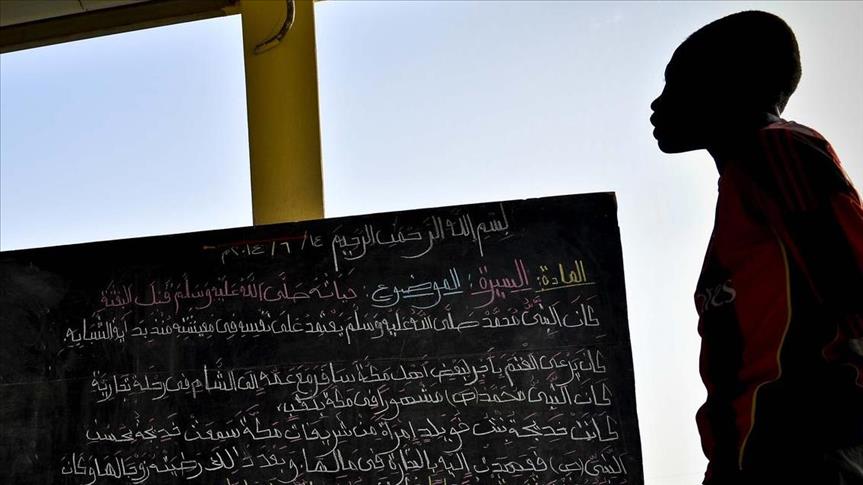 بسم الله الرحمن الرحيم ١٤/٦/٢٠١٤م
المادة: السيرة الموضوع: حياته صلى الله عليه وسلم قبل البعثة
كان النبي محمد صلى الله عليه وسلم يعتمد على نفسه في معيشته منذ بداية الشباب
كان يرعى الغنم بأجر لبعض أهل مكة سافر مع عمه إلى الشام في رحلة تجارية
كان النبي محمد (ص) مشهورا في مكة
كانت خديجة بنت خويلد امرأة من شريفات مكة سمعت خديجة بحسب
النبي (ص) فعهدت إليه بالتجارة في مالها. وبعد ذلك